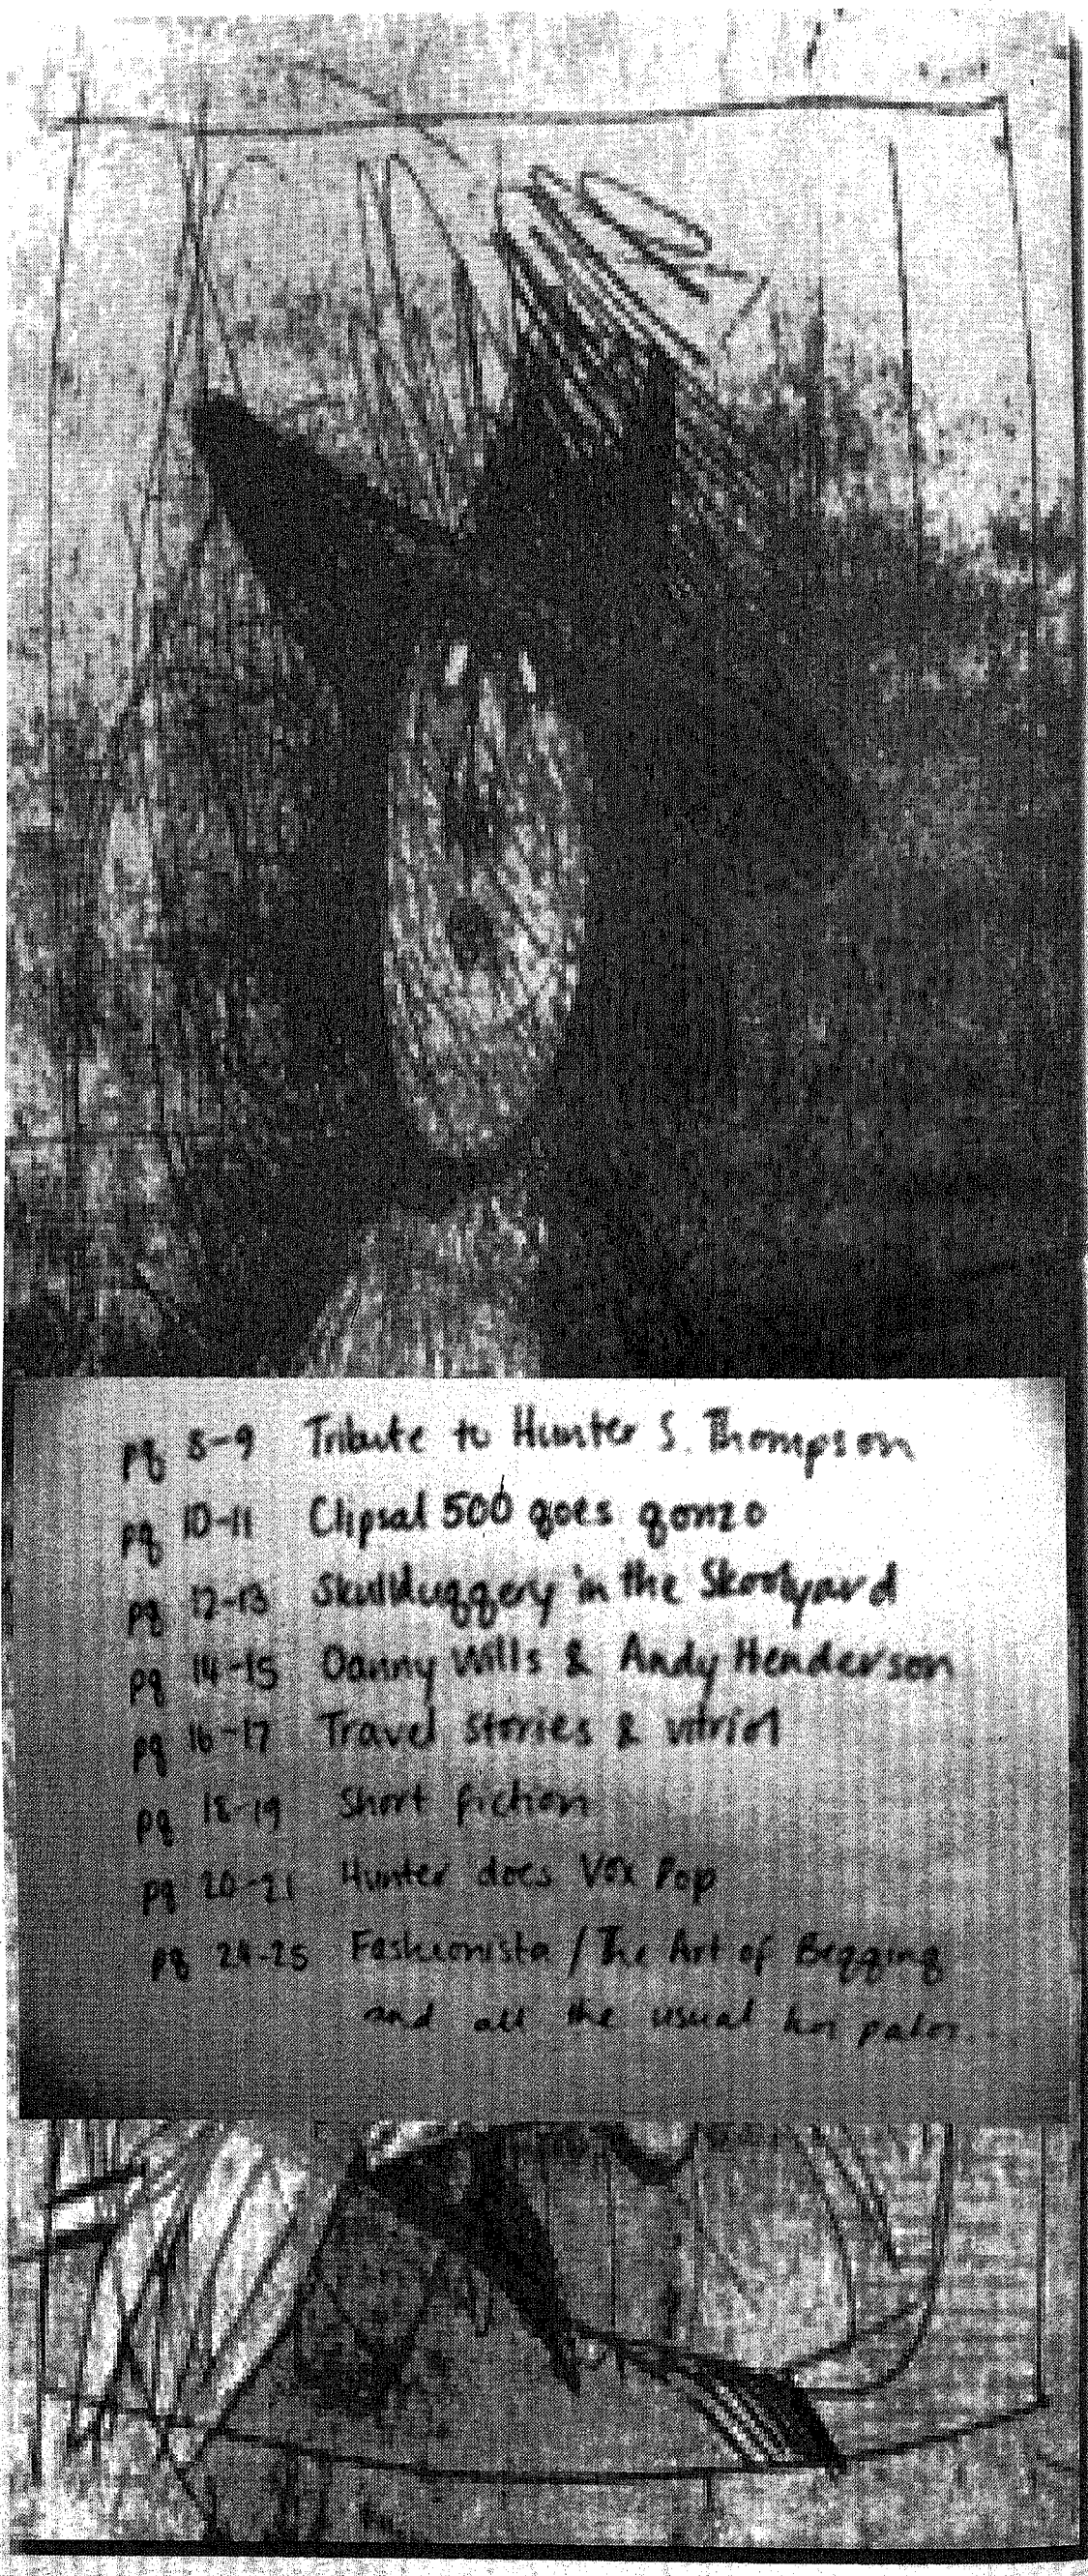 pg 8-9 Tribute to Hunter S. Thompson
pg 10-11 Clipsal 500 goes gonzo
pg 12-13 Skullduggery in the Skoolyard
pg 14-15 Danny Wills & Andy Henderson
pg 16-17 Travel stories & vitriol
pg 18-19 Short fiction
pg 20-21 Hunter does Vox Pop
pg 24-25 Fashionista / The Art of Begging
and all the usual